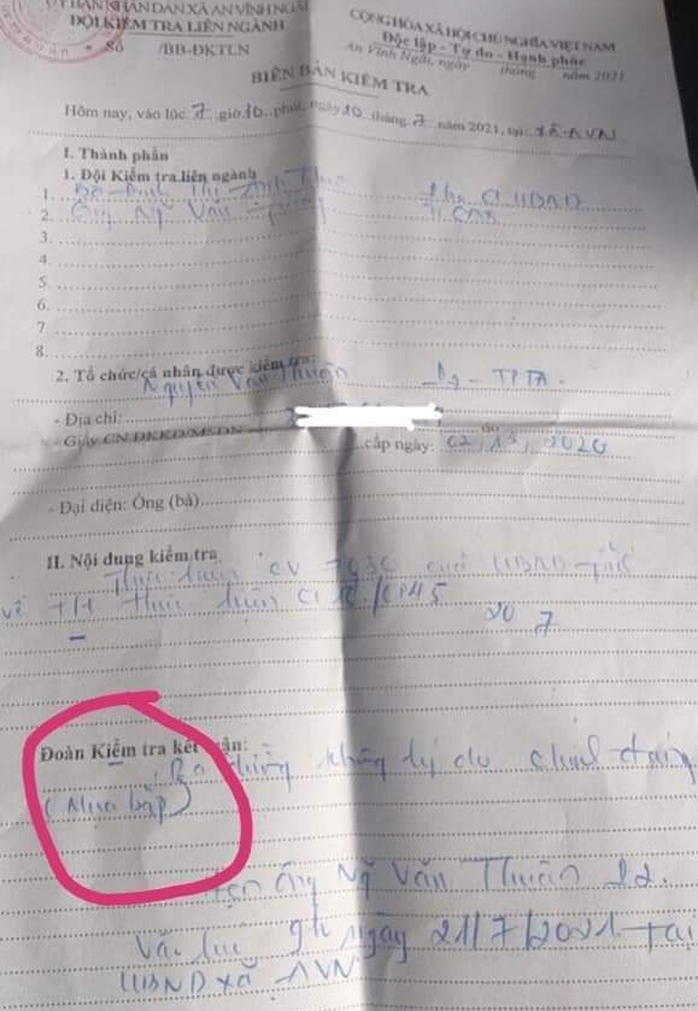 ỦY BAN NHÂN DÂN XÃ AN VĨNH NGÃI
ĐỘI KIỂM TRA LIÊN NGÀNH
Số /BB-ĐKTLN
CỘNG HÒA XÃ HỘI CHỦ NGHĨA VIỆT NAM
Độc lập - Tự do - Hạnh phúc
An Vĩnh Ngãi, ngày tháng năm 2021
BIÊN BẢN KIỂM TRA
Hôm nay, vào lúc 7 giờ 10 phút, ngày 20 tháng 7 năm 2021, tại: xã AVN
I. Thành phần
1. Đội Kiểm tra liên ngành
1. Bà Đinh Thị CT UBND
2. Ông Ng̃ Văn
3.
4.
5.
6.
7.
8.
2. Tổ chức/cá nhân được kiểm tra:
Nguyễn Văn Thuận - TPTA.
- Địa chỉ:
- Giấy CN ĐKKD/MSDN do
cấp ngày: 2020
- Đại diện: Ông (bà)
II. Nội dung kiểm tra
Thực hiện CV của UBND tỉnh
về thực hiện CT
20 7
Đoàn Kiểm tra kết luận:
Ra đường không lý do chính đáng
(Mua bắp)
Hẹn ông Ng̃ Văn Thuận
Vào lúc 9h ngày 21/7/2021 tại
UBND xã AVN